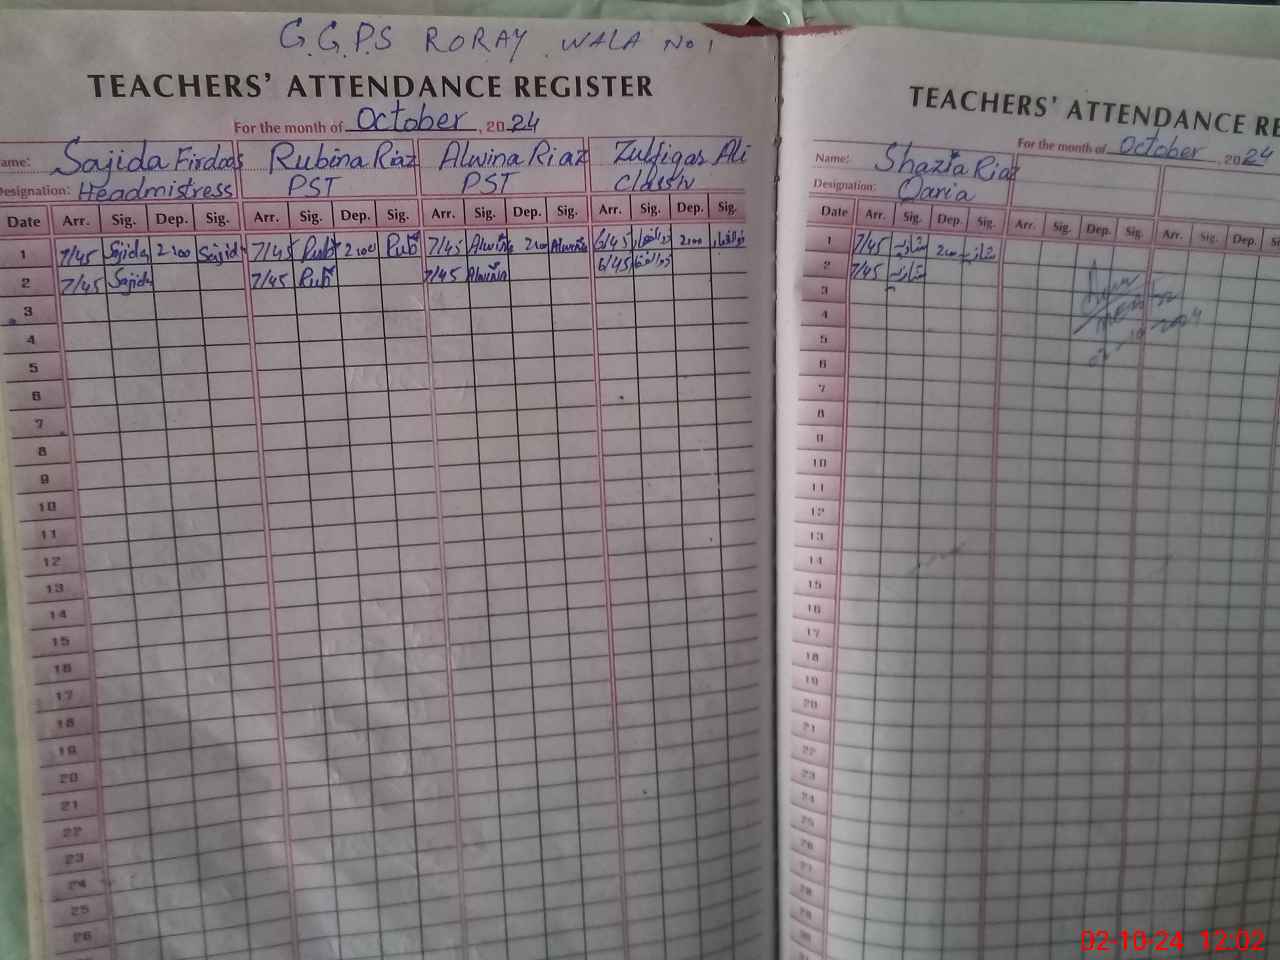 G.G.P.S RORAY WALA No 1
TEACHERS' ATTENDANCE REGISTER
For the month of October, 2024
ame: Sajida Firdoos Rubina Riaz Alwina Riaz Zulfiqar Ali
Designation: Headmistress PST PST Class iv
Date Arr. Sig. Dep. Sig. Arr. Sig. Dep. Sig. Arr. Sig. Dep. Sig. Arr. Sig. Dep. Sig.
1 7/45 Sajida 2:00 Sajid 7/45 Rub 2:00 Rub 7/45 Alwina 2:00 Alwina 6/45 ذوالفقار 2:00 ذوالفقار
2 7/45 Sajida 7/45 Rub 7/45 Alwina 6/45 ذوالفقار
3
4
5
6
7
8
9
10
11
12
13
14
15
16
17
18
19
20
21
22
23
24
25
26
TEACHERS' ATTENDANCE RE
For the month of October, 2024
Name: Shazia Riaz
Designation: Qaria
Date Arr. Sig. Dep. Sig. Arr. Sig. Dep. Sig. Arr. Sig. Dep. S
1 7/45 شازیہ 2:00 شازیہ
2 7/45 شازیہ
3
4
5
6
7
8
9
10
11
12
13
14
15
16
17
18
19
20
21
22
23
24
25
26
27
28
29
30
02-10-24 12:02